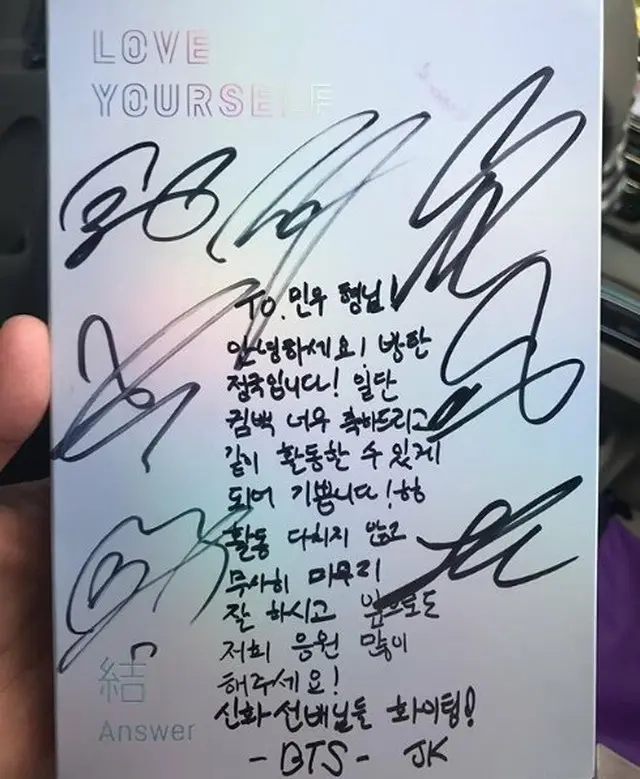 LOVE
YOURSELF
TO. 민우 형님!
안녕하세요! 방탄
정국입니다! 일단
컴백 너무 축하드리고
같이 활동할 수 있게
되어 기쁩니다! ㅎㅎ
활동 다치지 않고
무사히 마무리
잘 하시고 앞으로도
저희 응원 많이
해주세요!
신화 선배님들 화이팅!
- BTS - JK
結
Answer